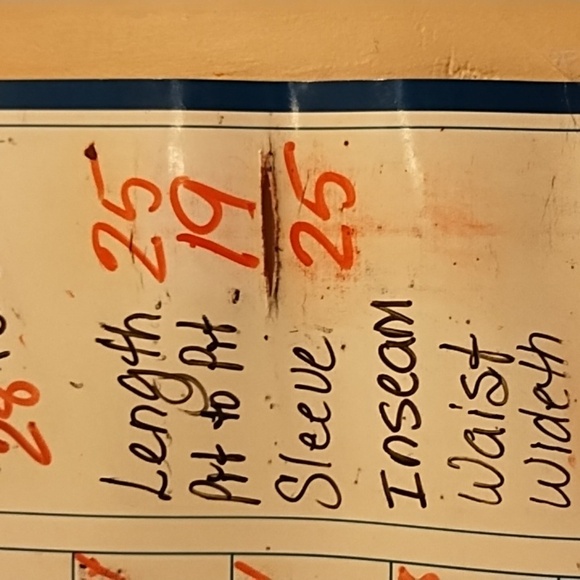 28
Length 25
Pit to Pit 19
Sleeve 25
Inseam
Waist
Wideth